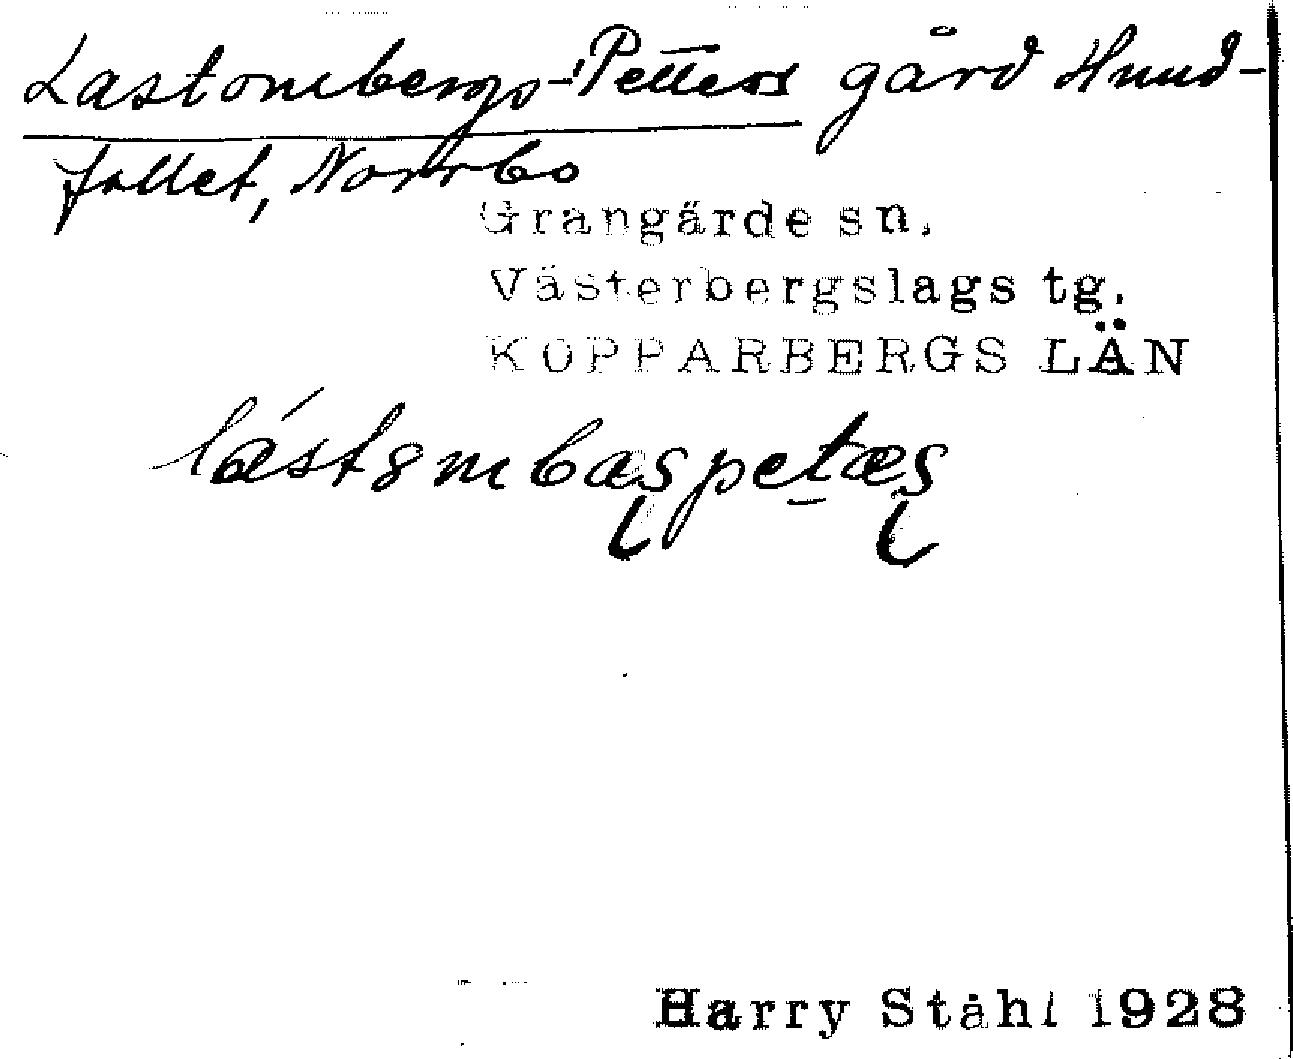 Lastombergs-Petters gård Hund-
fallet, Norrbo
Grangärde sn.
Västerbergslags tg.
KOPPARBERGS LÄN
Harry Ståhl 1928